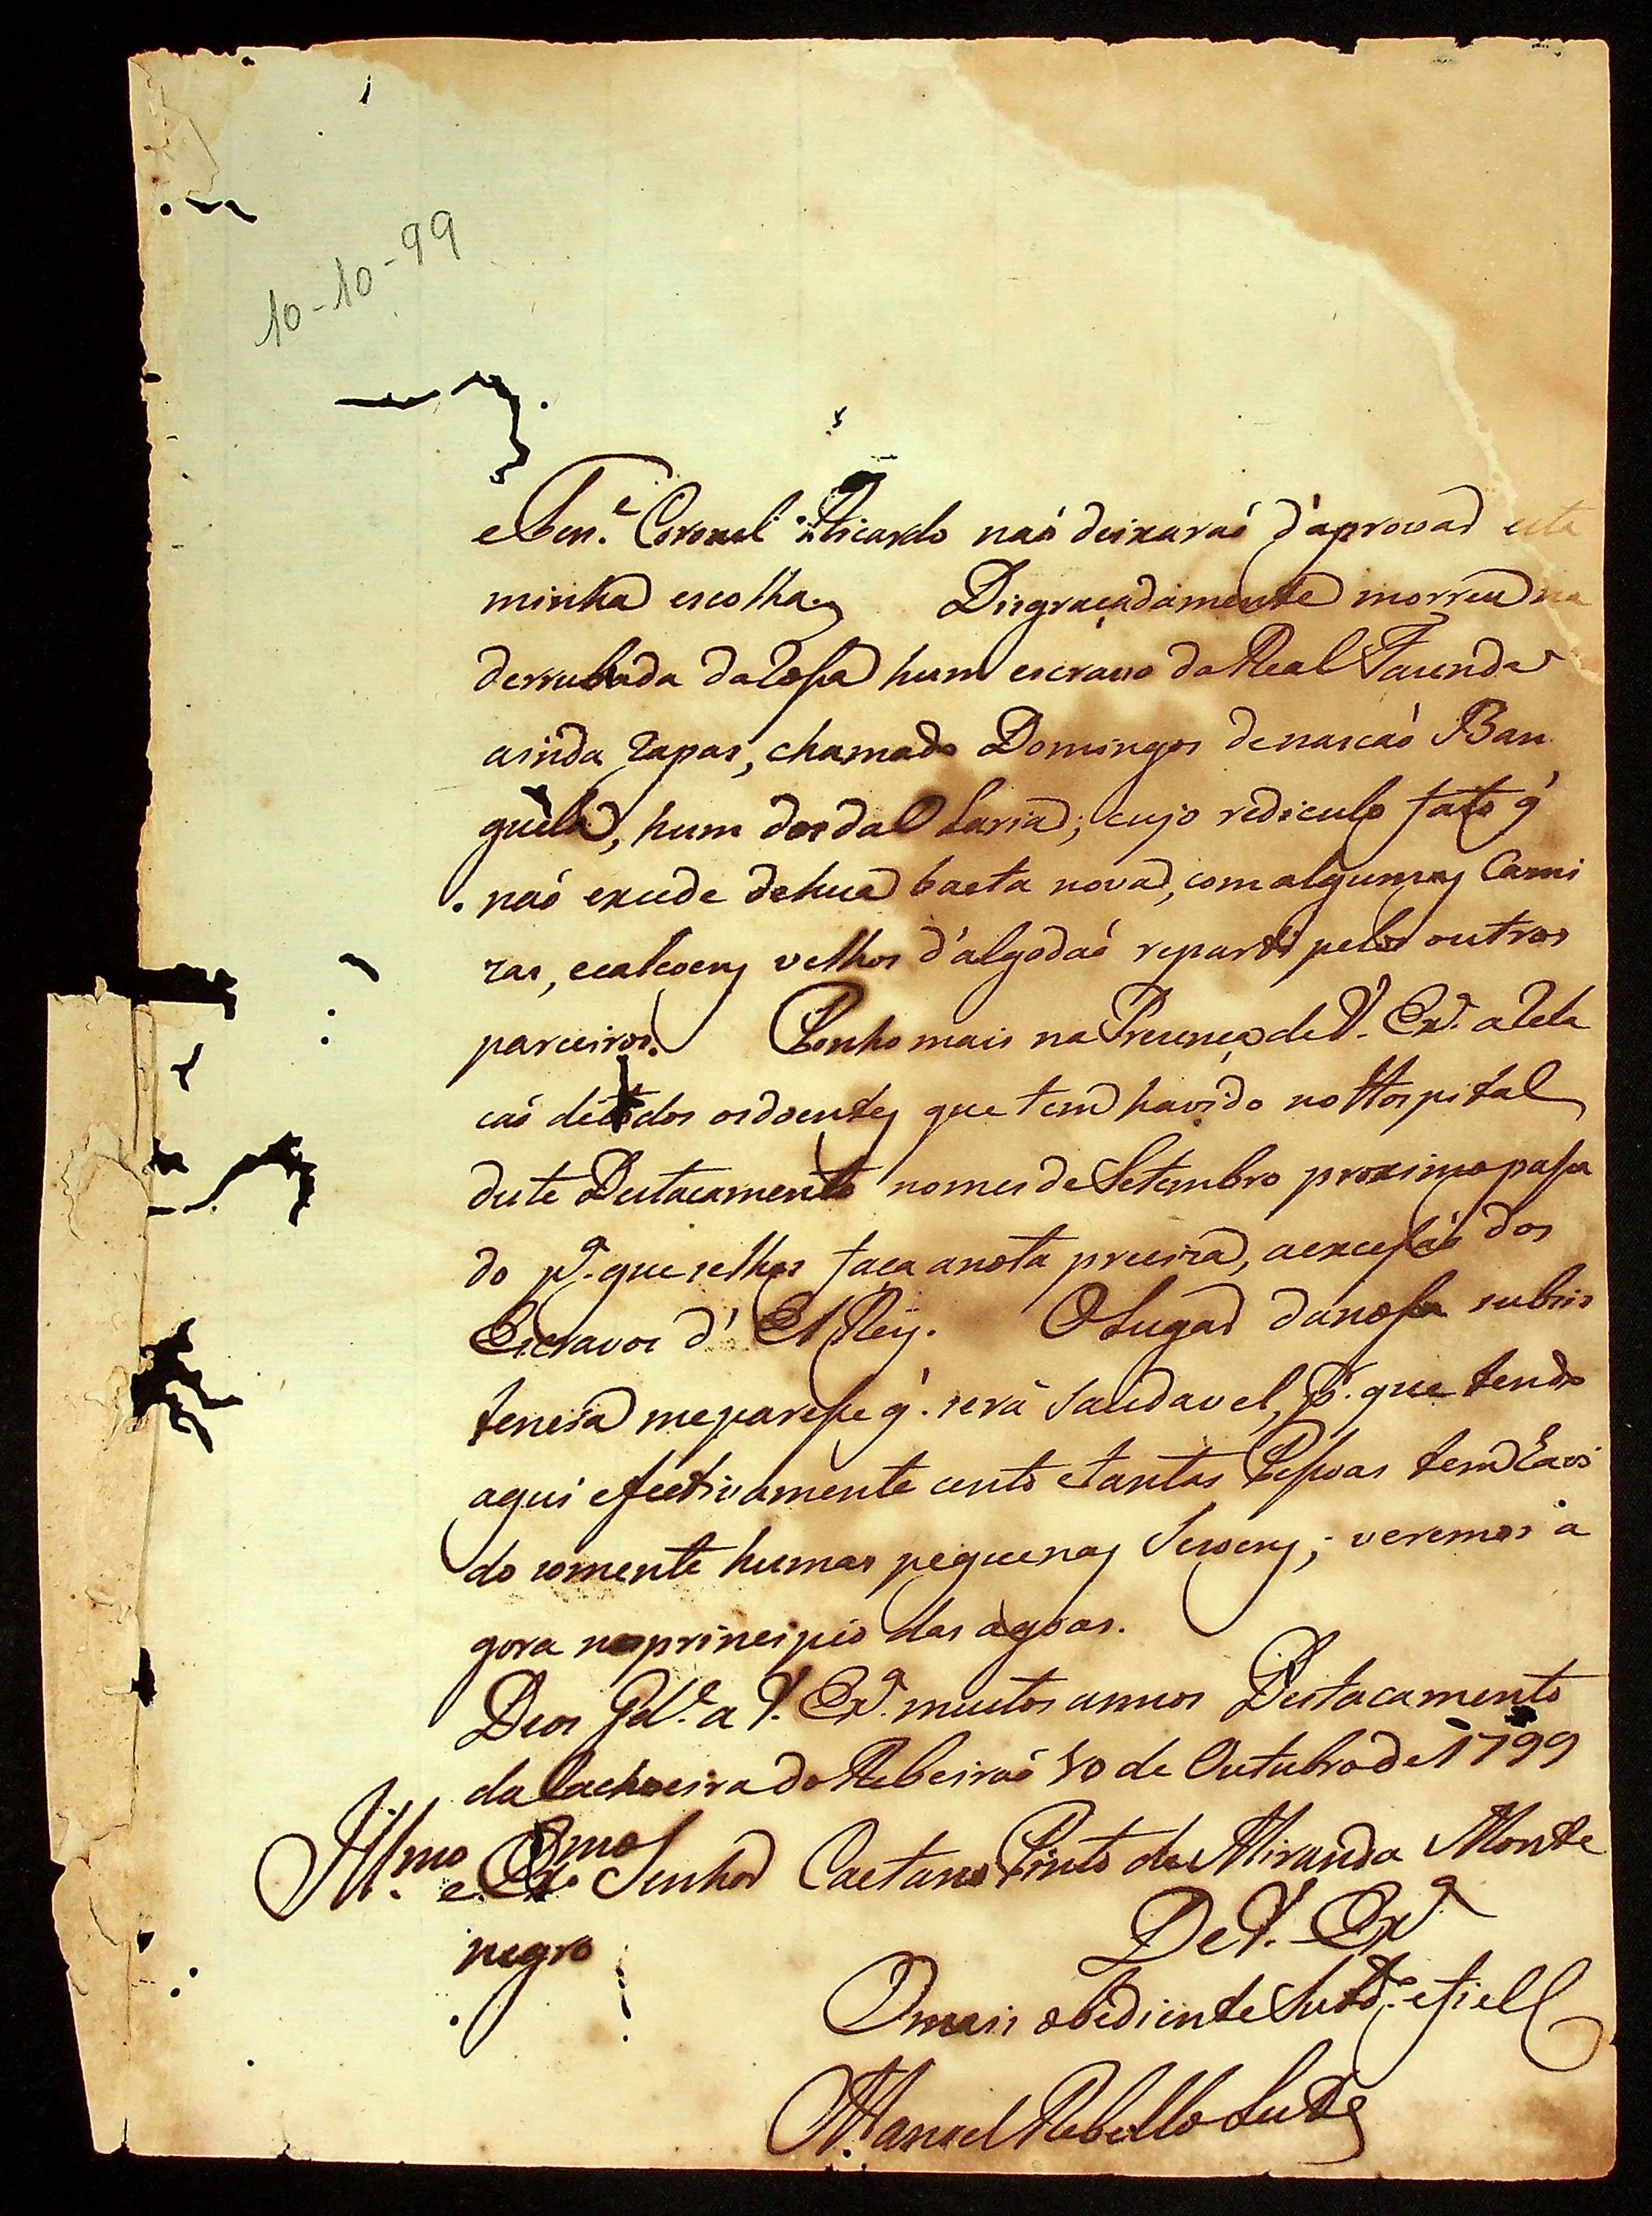 10-10-99
e Ten.e Coronel Ricardo naó deixaraó d'aprovar esta
minha escolha. Disgraçadamente morreu na
derrubada da Rossa hum escravo da Real Fazenda
ainda rapas, chamado Domingos de nascaó Ban
guela, hum dos da Luria; cujo rediculo fato q'
naó excede de hua baeta nova, com algumas Cami
zas, e calcoens velhos d'algodaó reparti pelos outros
parceiros. Ponho mais na Presença de V. Ex.a a Rela
caó de todos os doentes que tem havido no Hospital
deste Destacamento no mes de Setembro proximo passa
do p.a que se lhes faça a nota preciza, a excessaó dos
Escravos d' El Rey. O Lugar da nossa subsis
tencia me paresse q'. será saudavel, p.r que tendo
aqui efectivamente cento e tantas Pessoas tem havi
do somente humas pequenas Sezoens; veremos a
gora no principio das agoas.
Deos Gd.e a V. Ex.a muitos annos Destacamento
da Cachoeira do Ribeiraó 10 de Outubro de 1799
Ill.mo e Ex.mo Senhor Caetano Pinto de Miranda Monte
negro
De V. Ex.a
O mais obediente Subd.o e fiell
Manoel Rebello